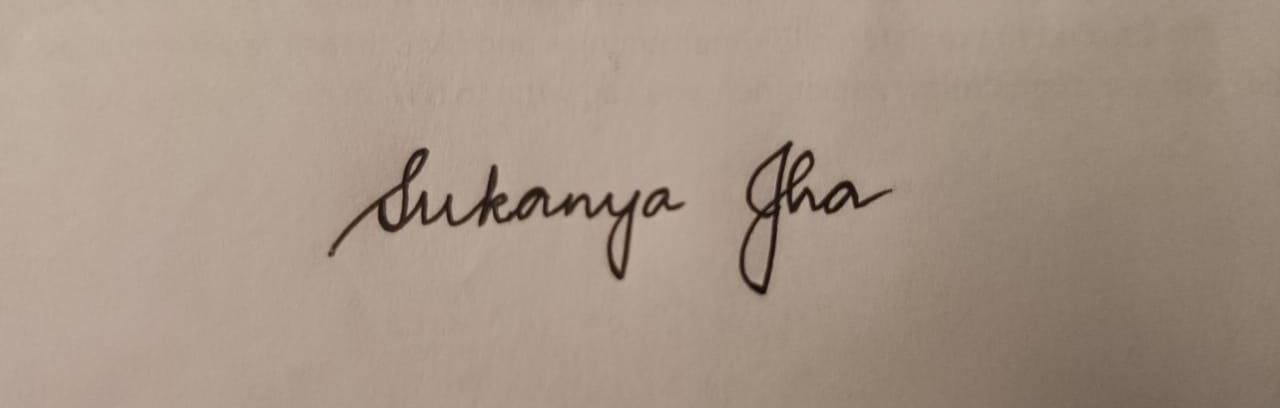 Sukanya Jha